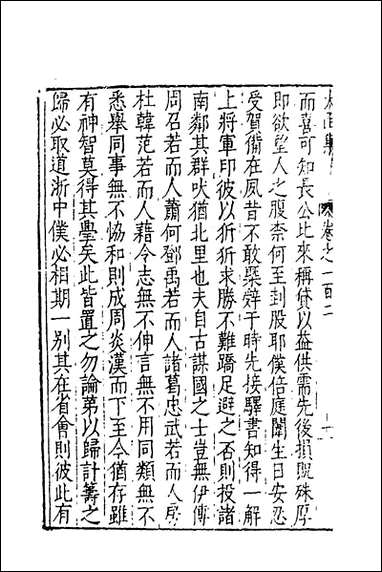 太函集 卷之一百二
而喜可知長公比來稱貸以益供需先後損貺殊厚
即欲望人之腹柰何至刲股耶僕倍庭闈生日安忍
受賀僃在夙昔不敢槩辭于時先接驛書知得一解
上將軍印彼以狺狺求勝不難蹻足避之否則投諸
南鄰其群吠猶北里也夫自古謀國之士豈無伊傅
周召若而人蕭何鄧禹若而人諸葛忠武若而人房
杜韓范若而人藉令志無不伸言無不用同類無不
悉舉同事無不恊和則成周炎漢而下至今猶存雖
有神智莫得其舋矣此皆置之勿論第以歸計籌之
歸必取道浙中僕必相期一別其在省會則彼此有